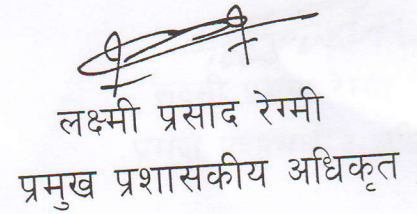 लक्ष्मी प्रसाद रेग्मी
प्रमुख प्रशासकीय अधिकृत